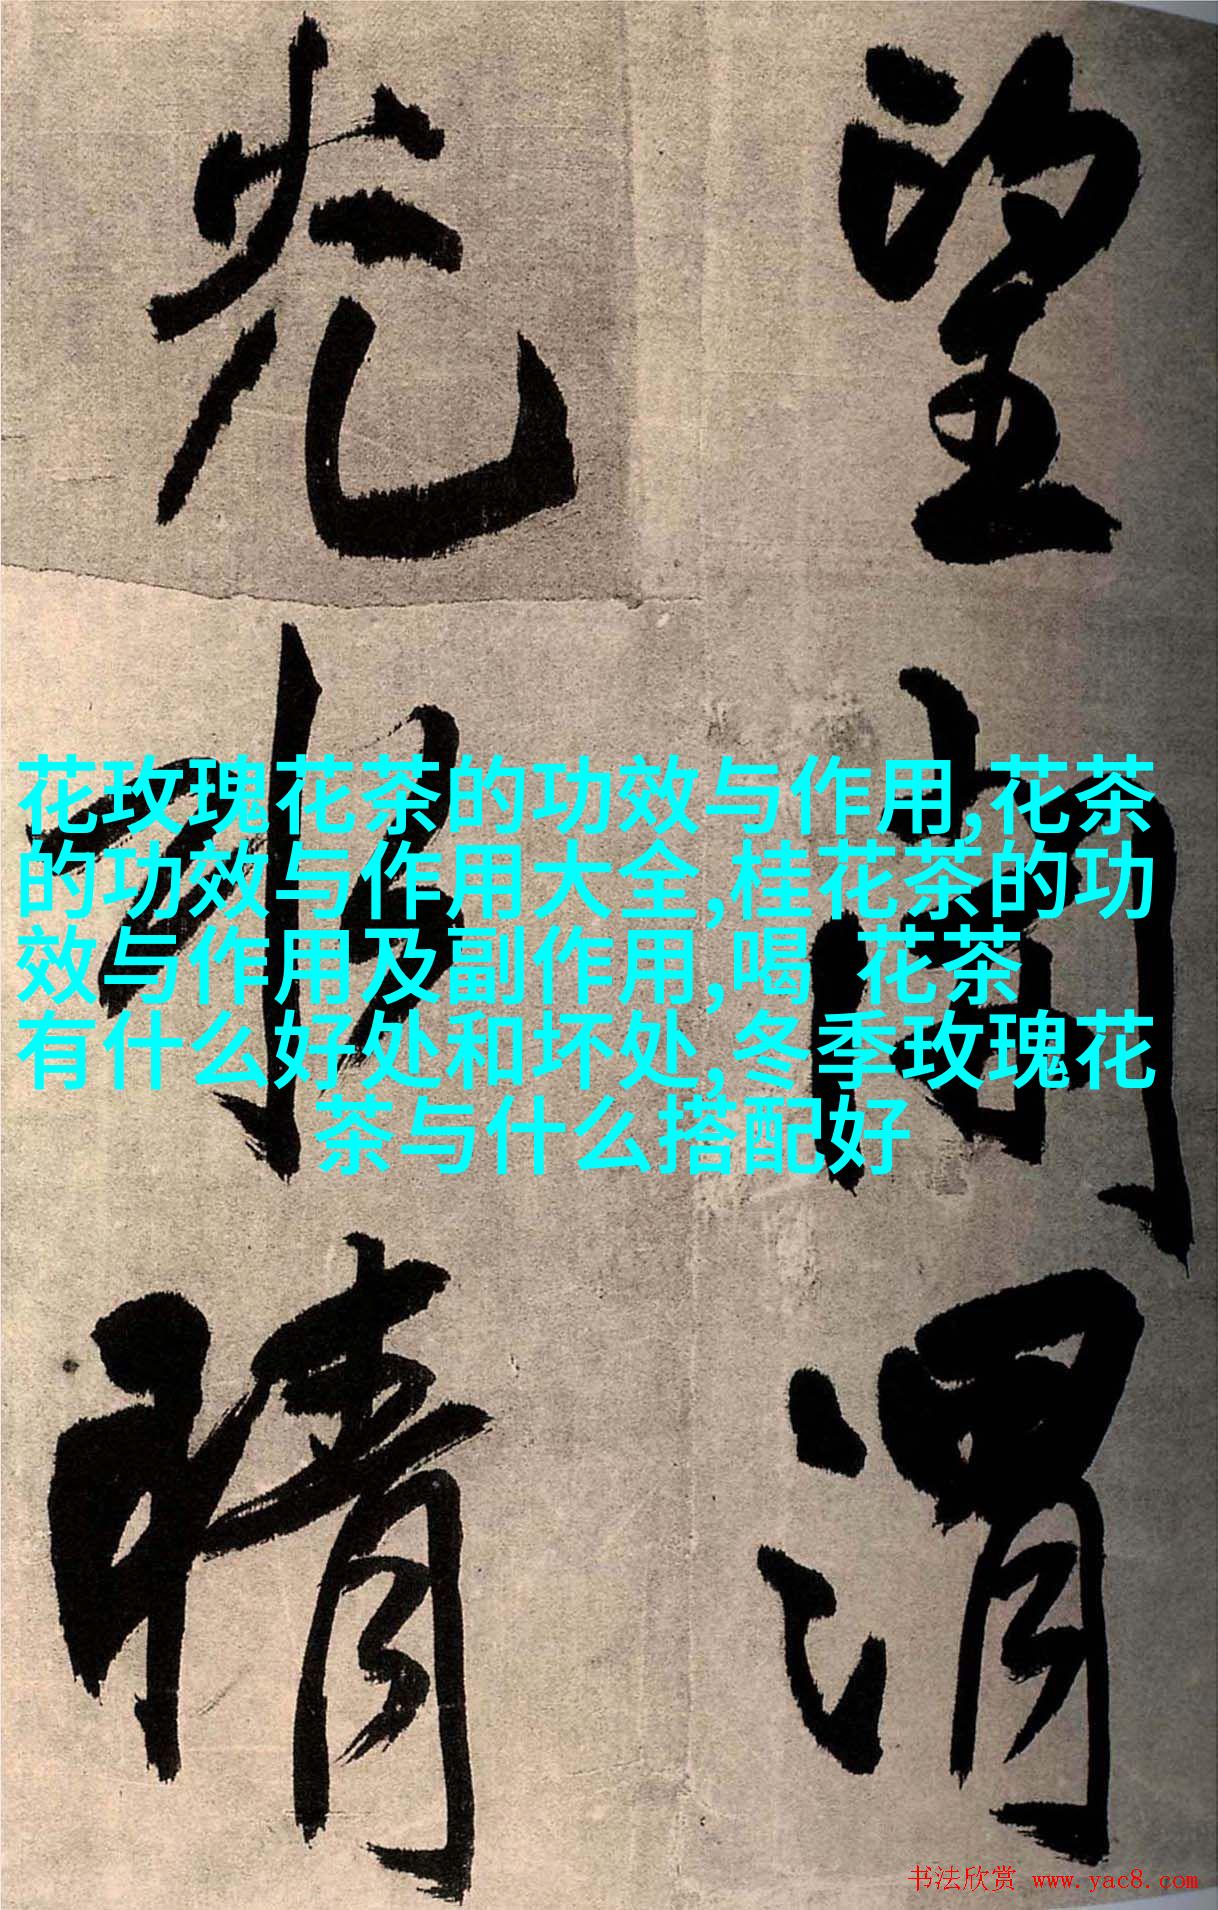 望
渭
光
晴
花玫瑰花茶的功效与作用,花茶
的功效与作用大全,桂花茶的功
效与作用及副作用,喝 花茶
有什么好处和坏处,冬季玫瑰花
茶与什么搭配好
书法欣赏 www.yac8.com